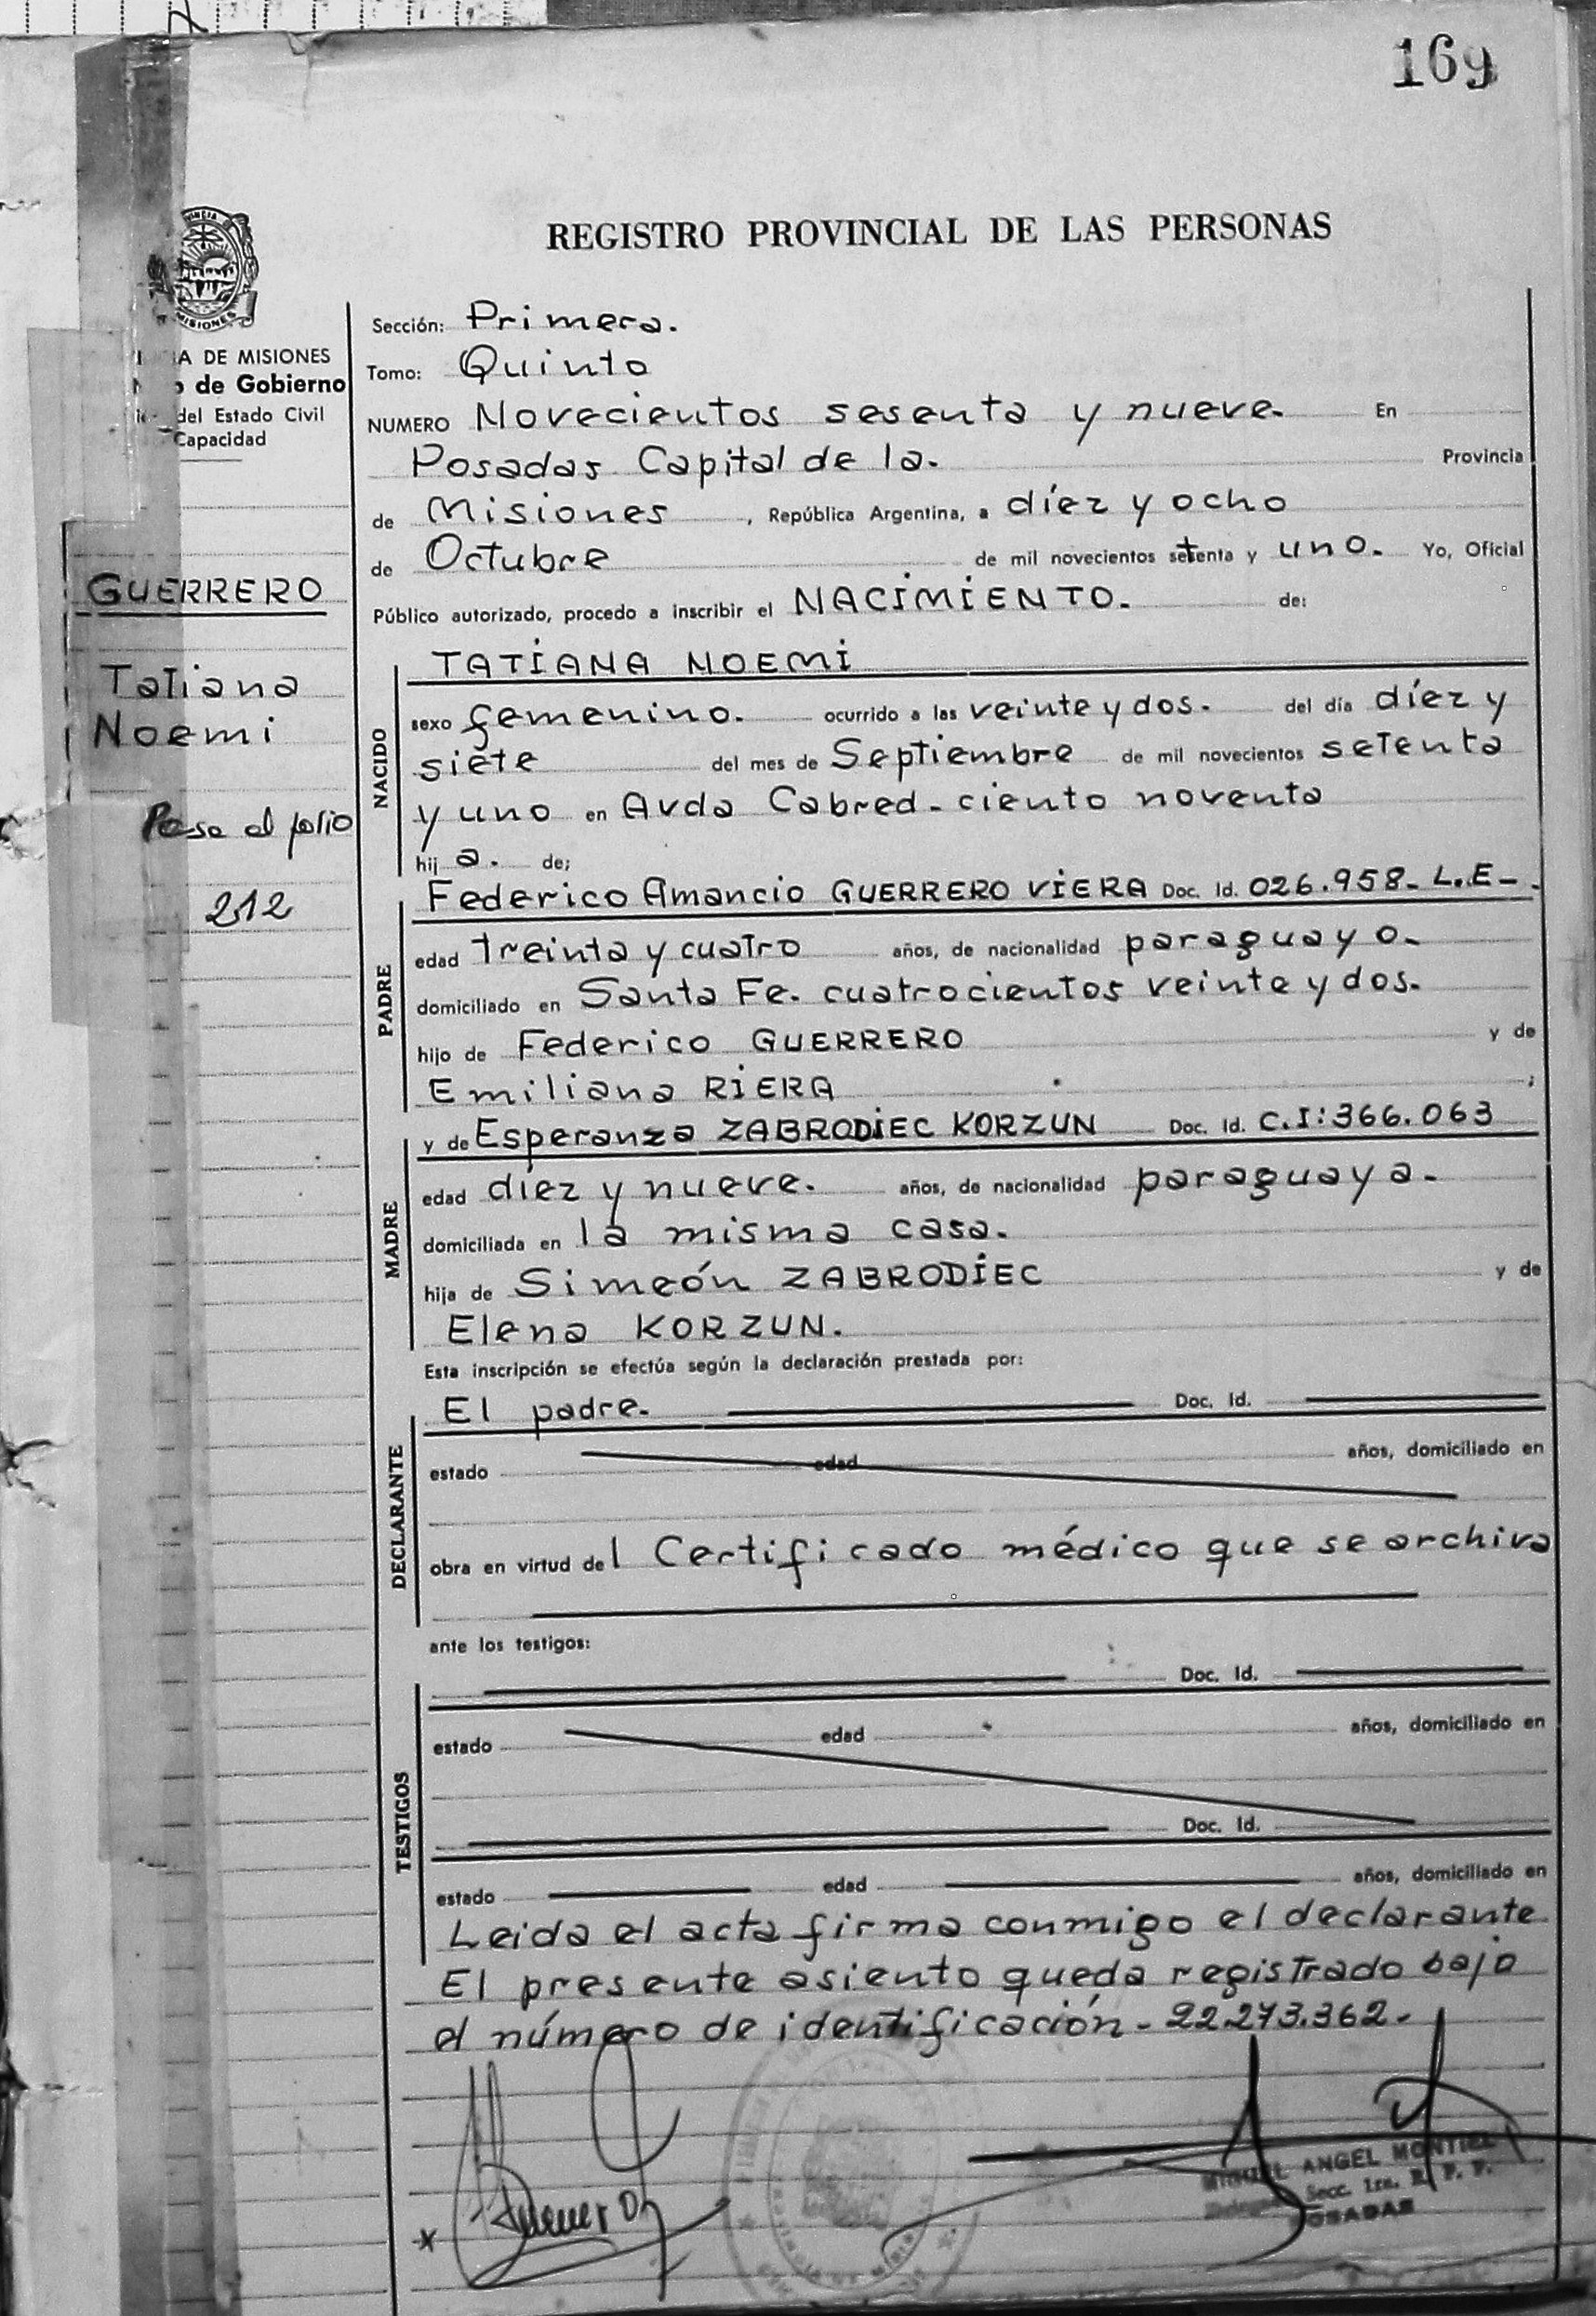 169
REGISTRO PROVINCIAL DE LAS PERSONAS
MISIONES
A DE MISIONES
de Gobierno
del Estado Civil
Capacidad
GUERRERO
Tatiana
Noemi
Pasa al folio
212
Sección: Primera.
Tomo: Quinto
NUMERO Novecientos sesenta y nueve. En
Posadas Capital de la. Provincia
de Misiones, República Argentina, a díez y ocho
de Octubre de mil novecientos setenta y uno. Yo, Oficial
Público autorizado, procedo a inscribir el NACIMIENTO. de:
NACIDO
TATIANA NOEMI
sexo femenino. ocurrido a las veinte y dos. del día díez y
siete del mes de Septiembre de mil novecientos setenta
y uno en Avda Cabred - ciento noventa
hij a. de;
PADRE
Federico Amancio GUERRERO VIERA Doc. Id. 026.958- L.E-.
edad treinta y cuatro años, de nacionalidad paraguayo.
domiciliado en Santa Fe. cuatrocientos veinte y dos.
hijo de Federico GUERRERO y de
Emiliana RIERA ;
MADRE
y de Esperanza ZABRODIEC KORZUN Doc. Id. C.I: 366.063
edad díez y nueve. años, de nacionalidad paraguaya.
domiciliada en la misma casa.
hija de Simeón ZABRODIEC y de
Elena KORZUN.
Esta inscripción se efectúa según la declaración prestada por:
DECLARANTE
El padre. Doc. Id.
estado edad años, domiciliado en
obra en virtud del Certificado médico que se archiva
ante los testigos:
TESTIGOS
Doc. Id.
estado edad años, domiciliado en
Doc. Id.
estado edad años, domiciliado en
Leida el acta firma conmigo el declarante
El presente asiento queda registrado bajo
el número de identificación - 22.273.362-
MIGUEL ANGEL MONTIEL
Secc. 1ra. R. P. P.
POSADAS